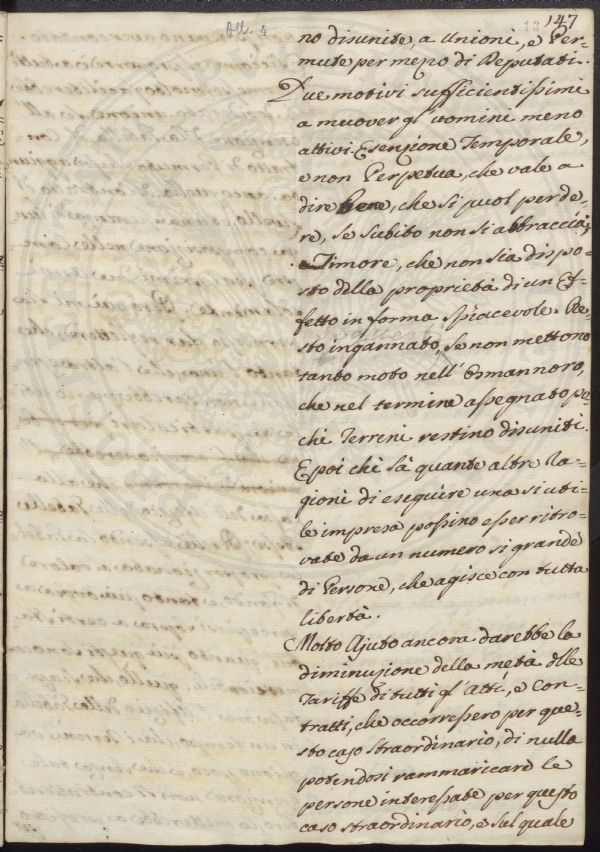 All. 4
13 147
no disunite, a Unioni, e Per-
mute per mezzo di Deputati.
Due motivi sufficientissimi
a muover gl'uomini meno
attivi. Esenzione Temporale,
e non Perpetua, che vale a
dire Bene, che si puol perde-
re, se subito non si abbraccia;
e Timore, che non sia dispo-
sto della proprietà di un Ef-
fetto in forma spiacevole. Re-
sto ingannato, se non mettono
tanto moto nell'Osmannoro,
che nel termine assegnato po-
chi Terreni restino disuniti.
E poi chi sà quante altre Ra-
gioni di eseguire una si uti-
le impresa possino esser ritro-
vate da un numero si grande
di Persone, che agisce con tutta
libertà.
Molto Ajuto ancora darebbe la
diminuzione della metà dlle
Tariffe di tutti gl'atti, e Con-
tratti, che occorressero per que-
sto caso straordinario, di nulla
potendosi rammaricare le
persone interessate per questo
caso straordinario, e sul quale